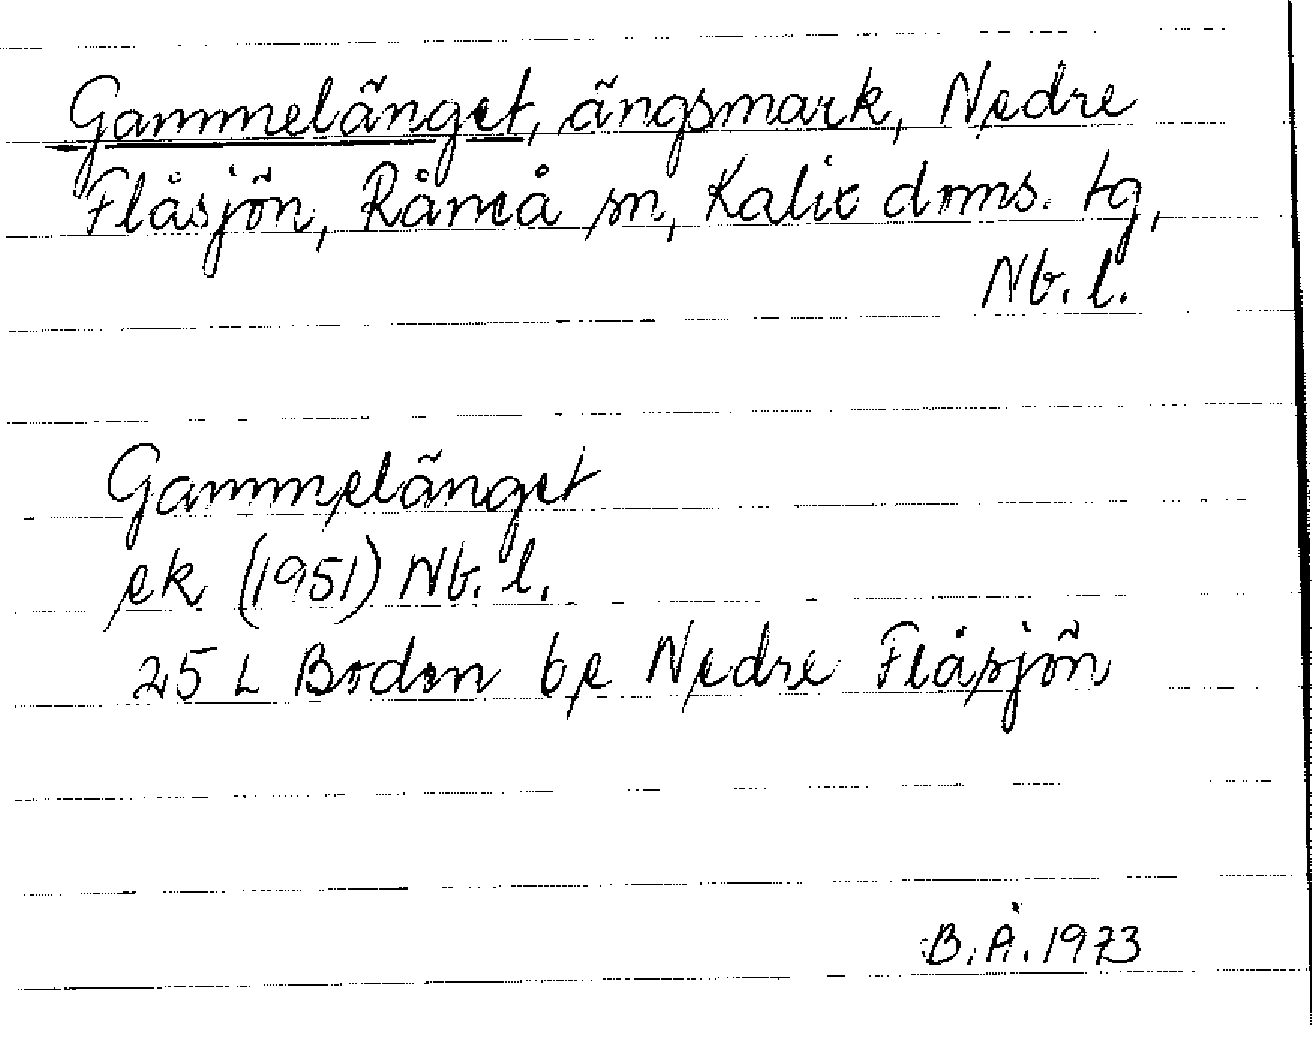 Gammelänget, ängsmark, Nedre
Flåsjön, Råneå sn, Kalix doms. tg,
Nb. l.
Gammelänget
ek (1951) Nb. l.
25 L Boden be Nedre Flåsjön
B. Å. 1973